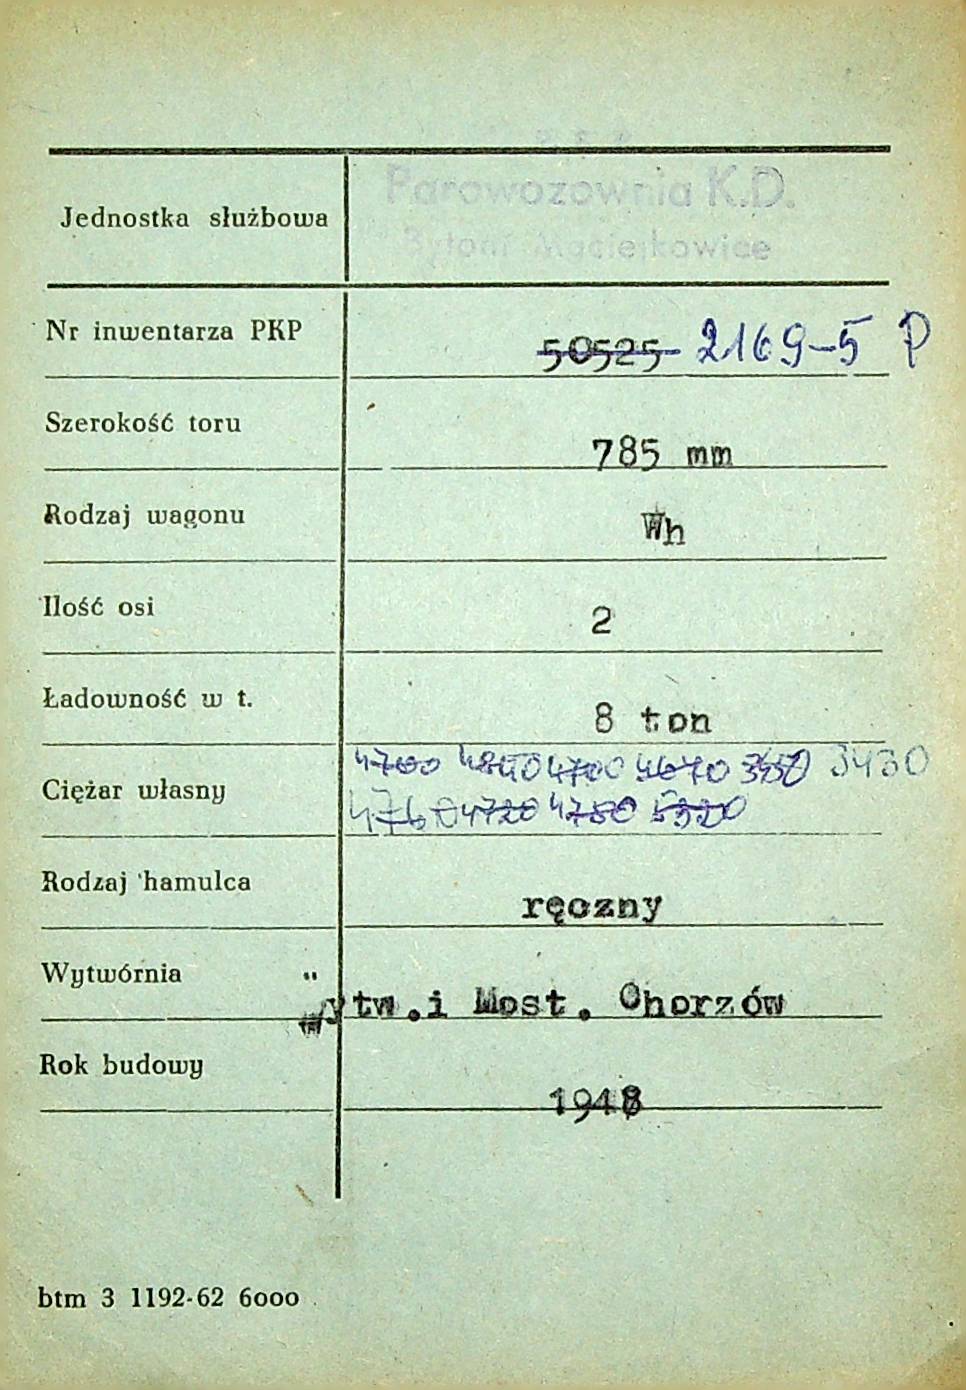 Parowozownia K.D.
Jednostka służbowa
Bytom Maciejkowice
Nr inwentarza PKP 50525 2169-5 P
Szerokość toru 785 mm
Rodzaj wagonu Wh
Ilość osi 2
Ładowność w t. 8 ton
4700 4840 4700 4670 3430
Ciężar własny
4760 4720 4750 5320
Rodzaj hamulca ręczny
Wytwórnia "
Wytw.i Most. Chorzów
Rok budowy 1948
btm 3 1192-62 6000